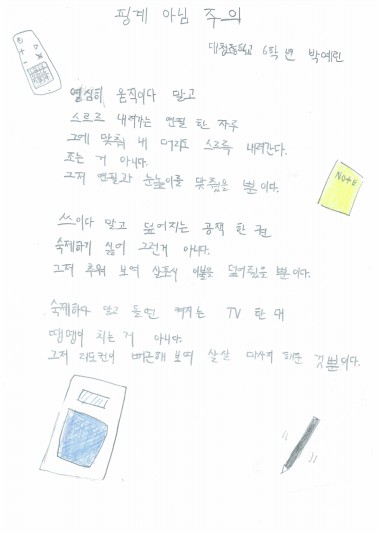 핑계 아님 주의
대청초등학교 6학년 박예린
열심히 움직이다 말고
스르르 내려가는 연필 한 자루
그에 맞춰 내 머리도 스르륵 내려간다.
조는 거 아니다.
그저 연필과 눈높이를 맞췄을 뿐이다.
Note
쓰이다 말고 덮어지는 공책 한 권
숙제하기 싫어 그런게 아니다.
그저 추워 보여 살포시 이불을 덮어줬을 뿐이다.
숙제하다 말고 틀면 켜지는 TV 한 대
땡땡이 치는 거 아니다.
그저 리모컨이 뻐근해 보여 살살 마사지 해준 것뿐이다.